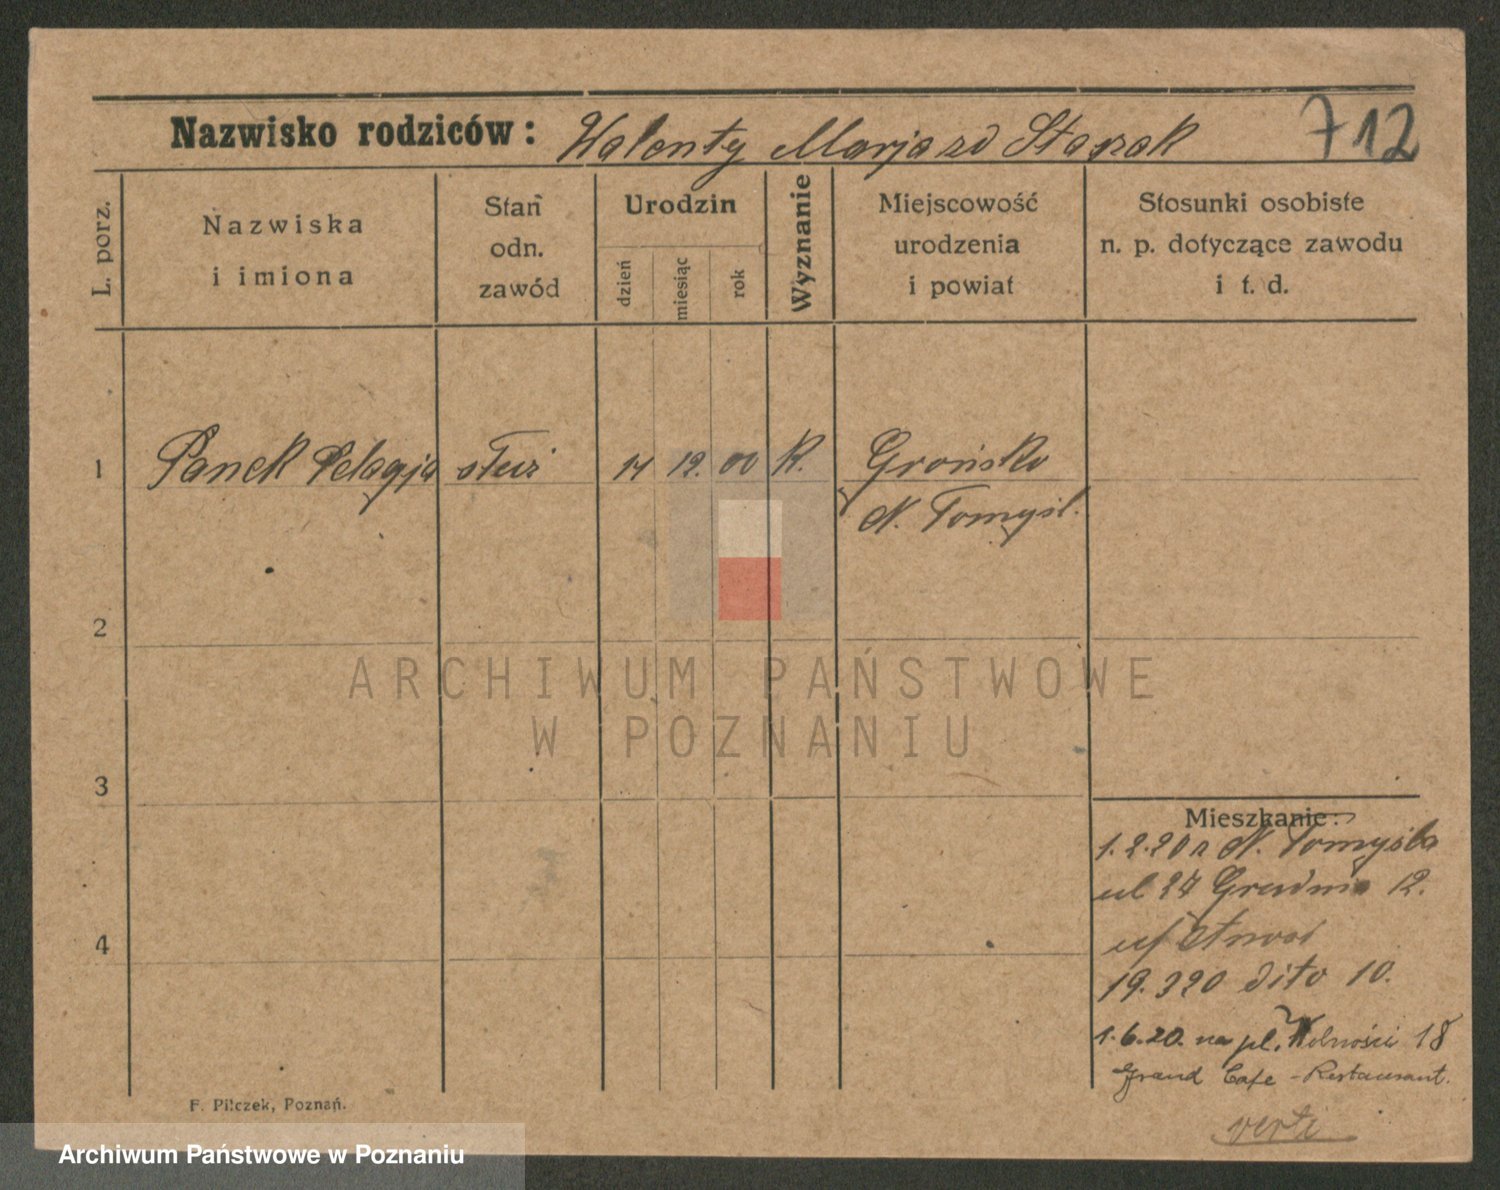 Nazwisko rodziców: Walenty Marja zd Staszak 712
L. porz.
Nazwiska
i imiona
Stan
odn.
zawód
Urodzin
dzień
miesiąc
rok
Wyznanie
Miejscowość
urodzenia
i powiat
Stosunki osobiste
n. p. dotyczące zawodu
i t. d.
1 Panek Pelagja służ 14 12. 00 K. Grońsko
N. Tomyśl.
2
3
4
Mieszkanie:
1.2.20 z N. Tomyśla
ul 27 Grudnia 12.
u/
19.3 20 dito 10.
1.6.20. na pl. Wolności 18
Grand Cafe - Restaurant.
verte
F. Pilczek, Poznań.
ARCHIWUM PAŃSTWOWE
W POZNANIU
Archiwum Państwowe w Poznaniu